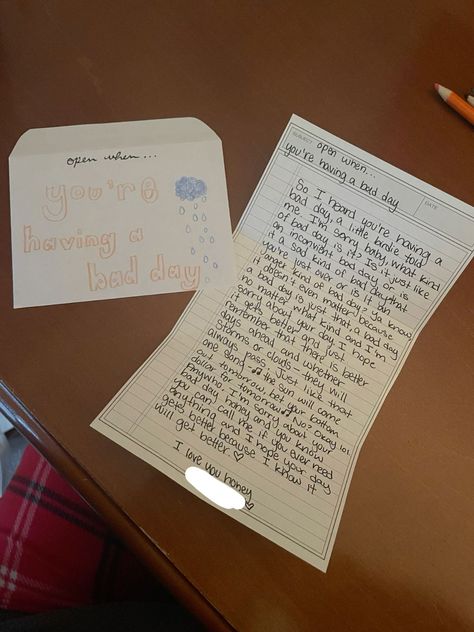 open when...
you're
having a
bad day
SUBJECT
open when...
you're having a bad day
DATE
So I heard you're having a
bad day, a little birdie told
me. I'm sorry baby, what kind
of bad day is it? Is it just like
an inconvient bad day or is
it a sad kind of bad day that
you're just over or is it an
anger kind of bad day? Ya know,
it doesn't even matter because
a bad day is just that, a bad day
no matter what kind and I'm
sorry about your day. I hope
it gets better and just
remember that there is better
days ahead - whether
storms or clouds - they will
always pass. Just like that
one song ♫ the sun will come
out tomorrow bet your bottom
dollar for tomorrow ♫ No? Okay lol
Anywho, I'm sorry about
bad day honey and you know
you can call me if you ever need
anything and I hope your day
gets better because I know it
will get better ♡
I love you honey
♡